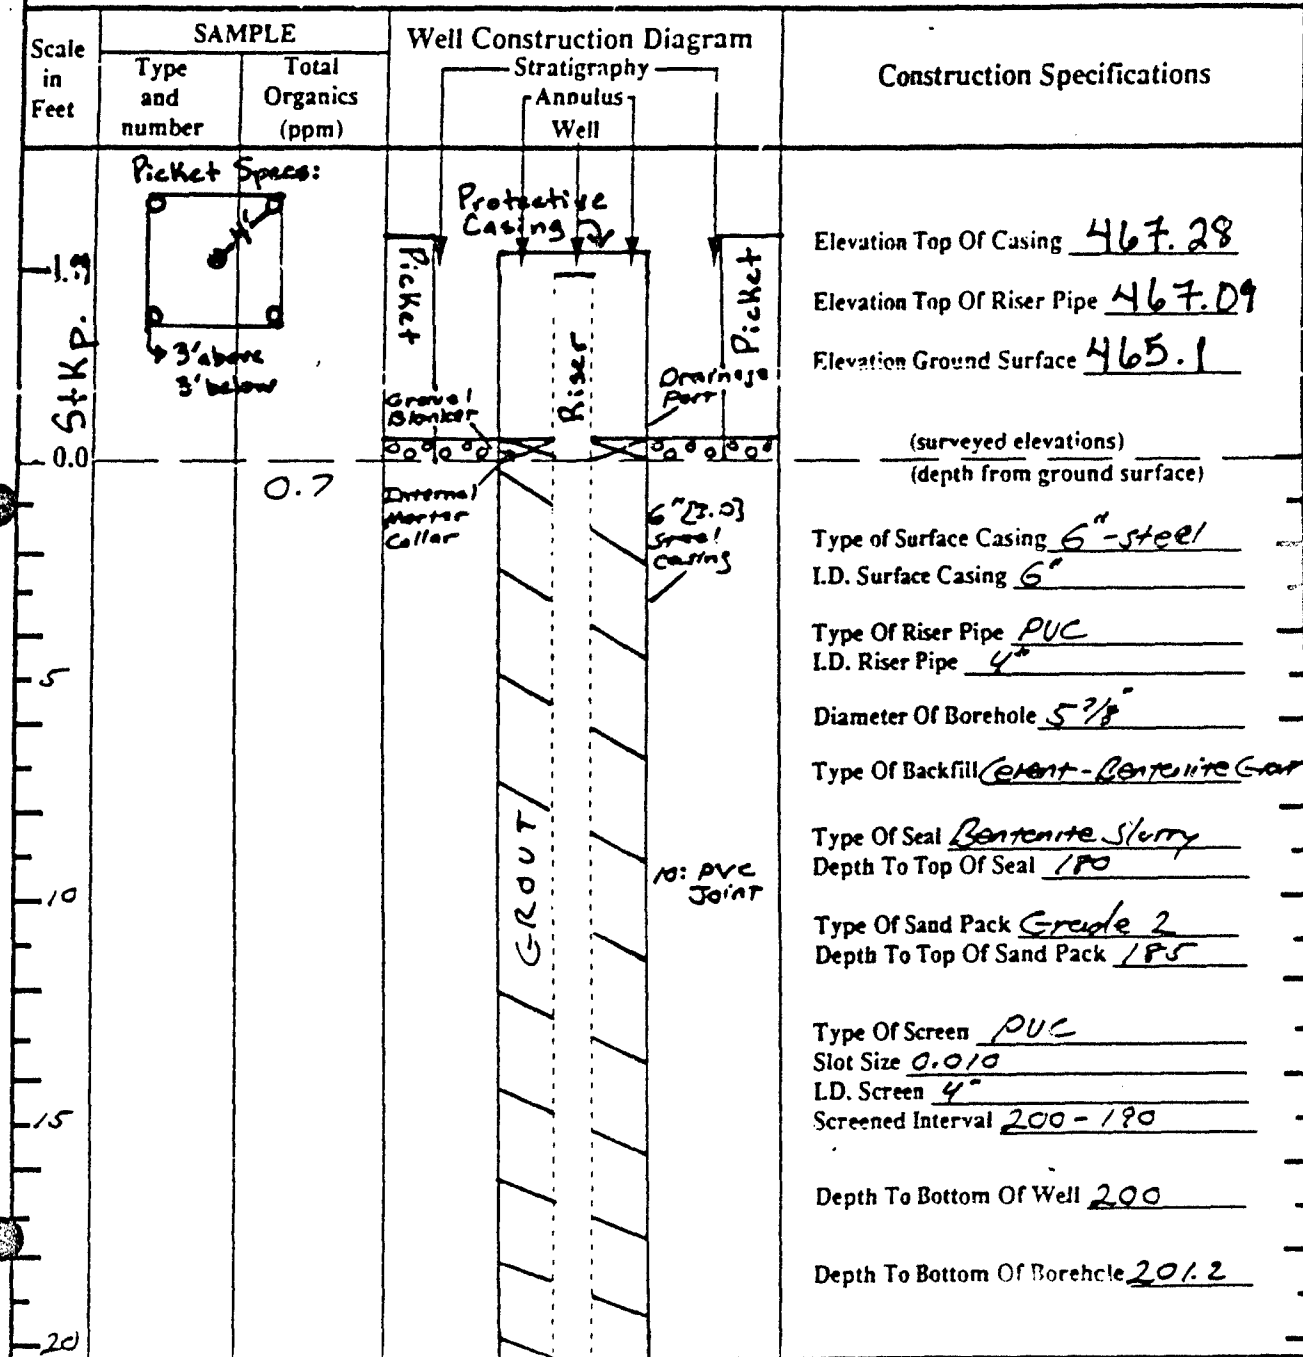 Scale
in
Feet
SAMPLE
Type
and
number
Total
Organics
(ppm)
Well Construction Diagram
Stratigraphy
Annulus
Well
Construction Specifications
Picket Specs:
4'
3' above
3' below
StKp.
0.0
5
10
15
20
0.7
Protective
Casing
Picket
Riser
Picket
Gravel
Blanket
Drainage
Port
Internal
Mortar
Collar
Steel
casing
GROUT
10: PVC
Joint
Elevation Top Of Casing 467.28
Elevation Top Of Riser Pipe 467.09
Elevation Ground Surface 465.1
(surveyed elevations)
(depth from ground surface)
Type of Surface Casing 6"-steel
I.D. Surface Casing 6"
Type Of Riser Pipe PVC
I.D. Riser Pipe 4"
Diameter Of Borehole 5 7/8"
Type Of Backfill Cement-Bentonite Grout
Type Of Seal Bentonite Slurry
Depth To Top Of Seal 180
Type Of Sand Pack Grade 2
Depth To Top Of Sand Pack 185
Type Of Screen PVC
Slot Size 0.010
I.D. Screen 4"
Screened Interval 200-190
Depth To Bottom Of Well 200
Depth To Bottom Of Borehole 201.2